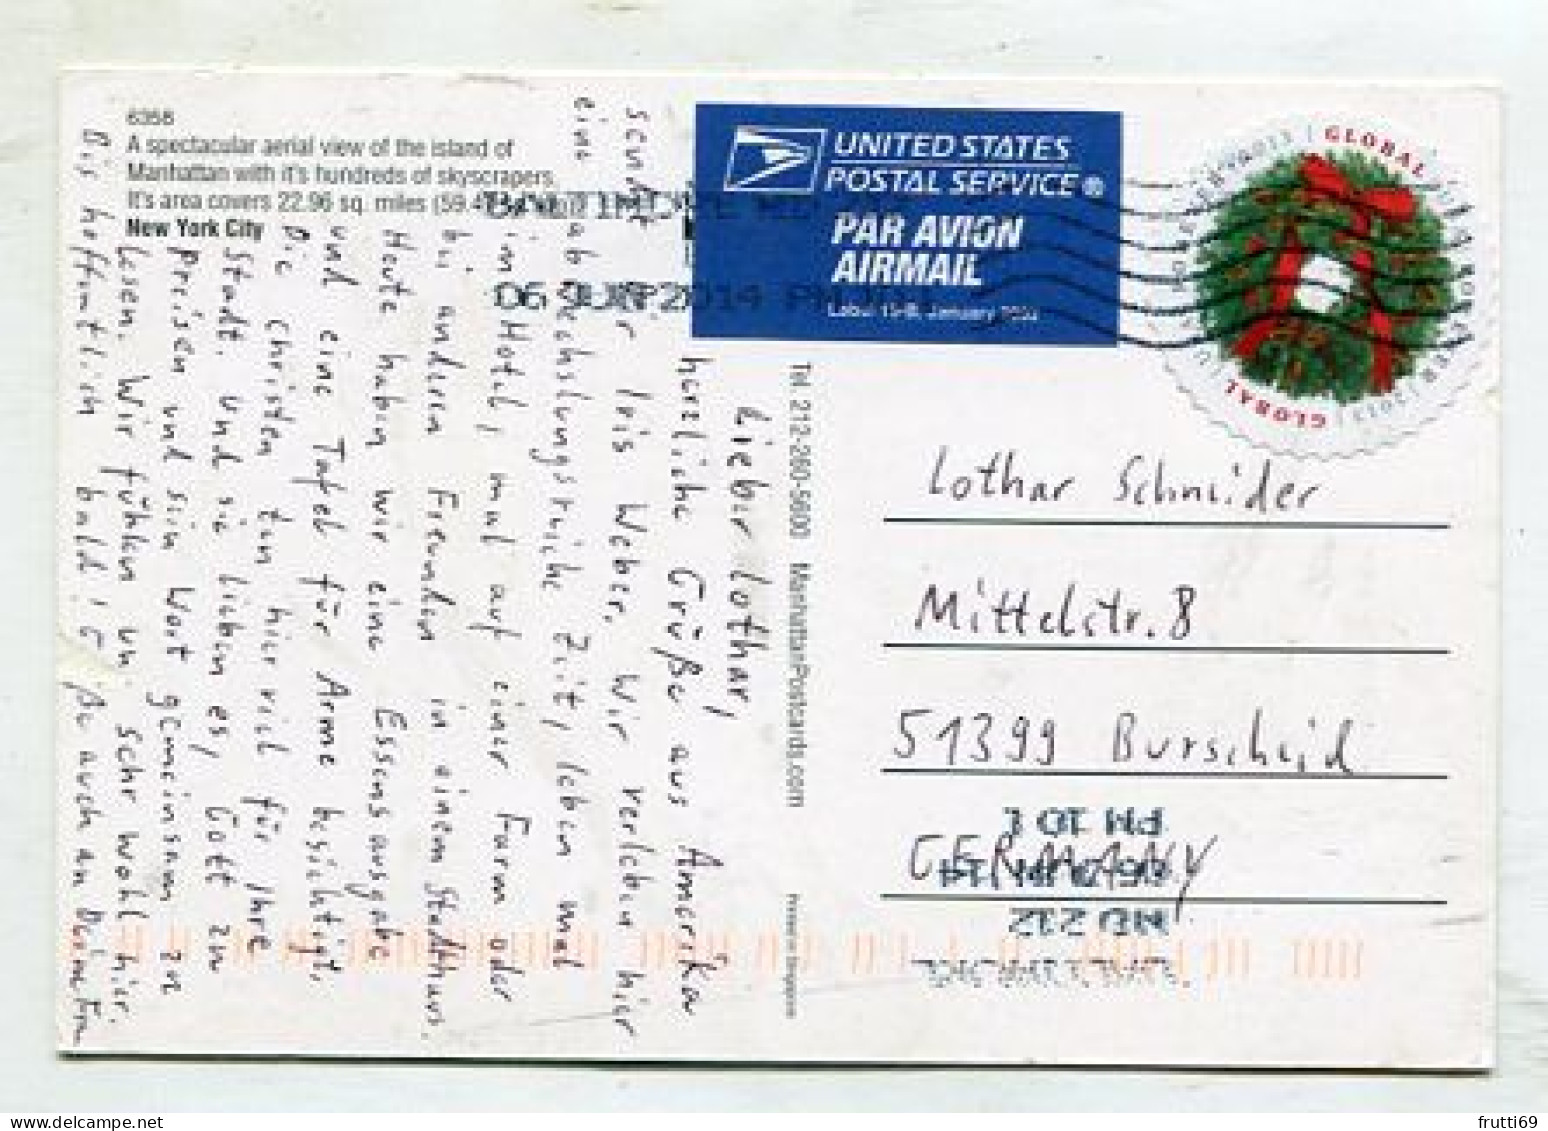 6358
A spectacular aerial view of the island of
Manhattan with it's hundreds of skyscrapers
It's area covers 22.96 sq. miles
New York City
UNITED STATES
POSTAL SERVICE®
PAR AVION
AIRMAIL
Label 19-B, January
BALTIMORE MD
06 JUN 2014 PM
GLOBAL
GLOBAL
Tel. 212-260-5600 ManhattanPostcards.com
Printed in Singapore
Lieber Lothar,
herzliche Grüße aus Amerika
sendet Dir Lois Weber. Wir verleben hier
eine abwechslungsreiche Zeit, leben mal
im Hotel, mal auf einer Farm oder
bei anderen Freunden in einem Stadthaus.
Heute haben wir eine Essensausgabe
und eine Tafel für Arme besichtigt.
Die Christen tun hier viel für ihre
Stadt. Und sie lieben es, Gott zu
preisen und sein Wort gemeinsam zu
lesen. Wir fühlen uns sehr wohl hier.
Bis hoffentlich bald! auch an Deine
Lothar Schneider
Mittelstr. 8
51399 Burscheid
GERMANY
PM 10 L
MD 212
frutti69